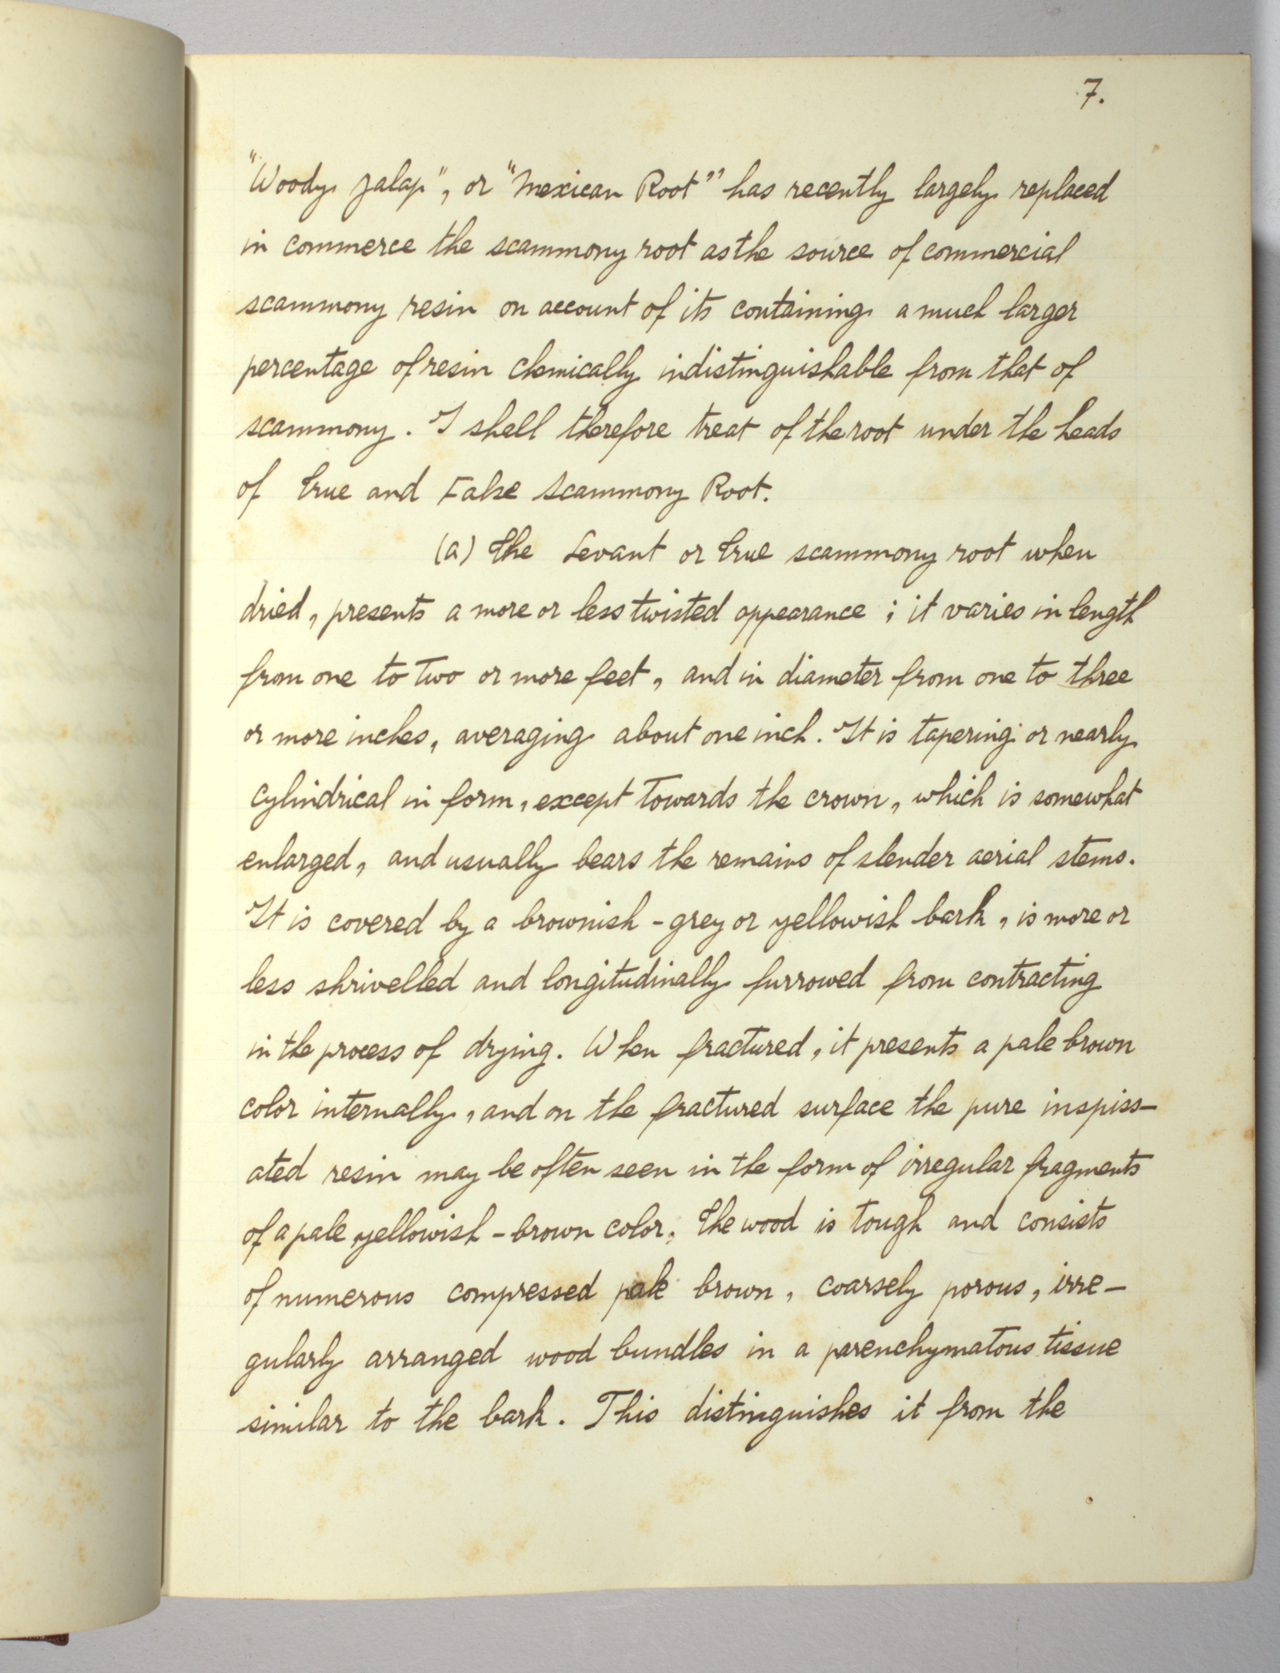 7.
"Woody Jalap", or "Mexican Root" has recently largely replaced
in commerce the scammony root as the source of commercial
scammony resin on account of its containing a much larger
percentage of resin chemically indistinguishable from that of
scammony. I shall therefore treat of the root under the heads
of True and False Scammony Root.
(a) The Levant or True scammony root when
dried, presents a more or less twisted appearance; it varies in length
from one to two or more feet, and in diameter from one to three
or more inches, averaging about one inch. It is tapering or nearly
cylindrical in form, except towards the crown, which is somewhat
enlarged, and usually bears the remains of slender aerial stems.
It is covered by a brownish-grey or yellowish bark, is more or
less shrivelled and longitudinally furrowed from contracting
in the process of drying. When fractured, it presents a pale brown
color internally, and on the fractured surface the pure inspiss-
ated resin may be often seen in the form of irregular fragments
of a pale yellowish-brown color. The wood is tough and consists
of numerous compressed pale brown, coarsely porous, irre-
gularly arranged wood bundles in a parenchymatous tissue
similar to the bark. This distinguishes it from the